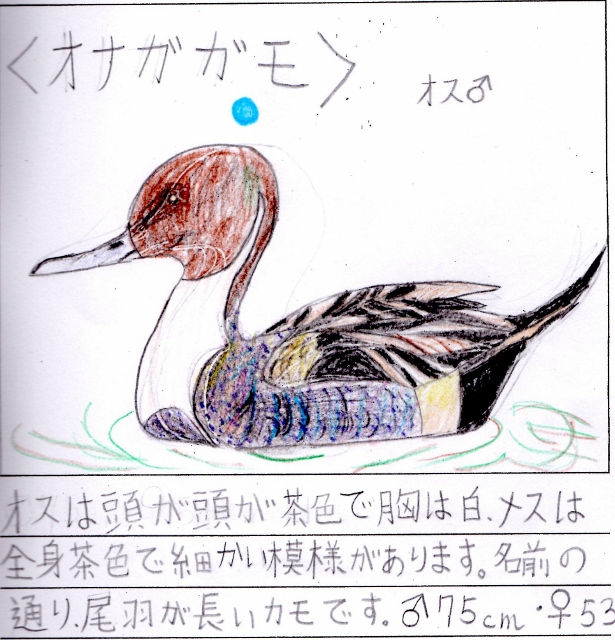 〈オナガガモ〉
オス♂
オスは頭が頭が茶色で胸は白、メスは
全身茶色で細かい模様があります。名前の
通り、尾羽が長いカモです。♂75cm・♀53